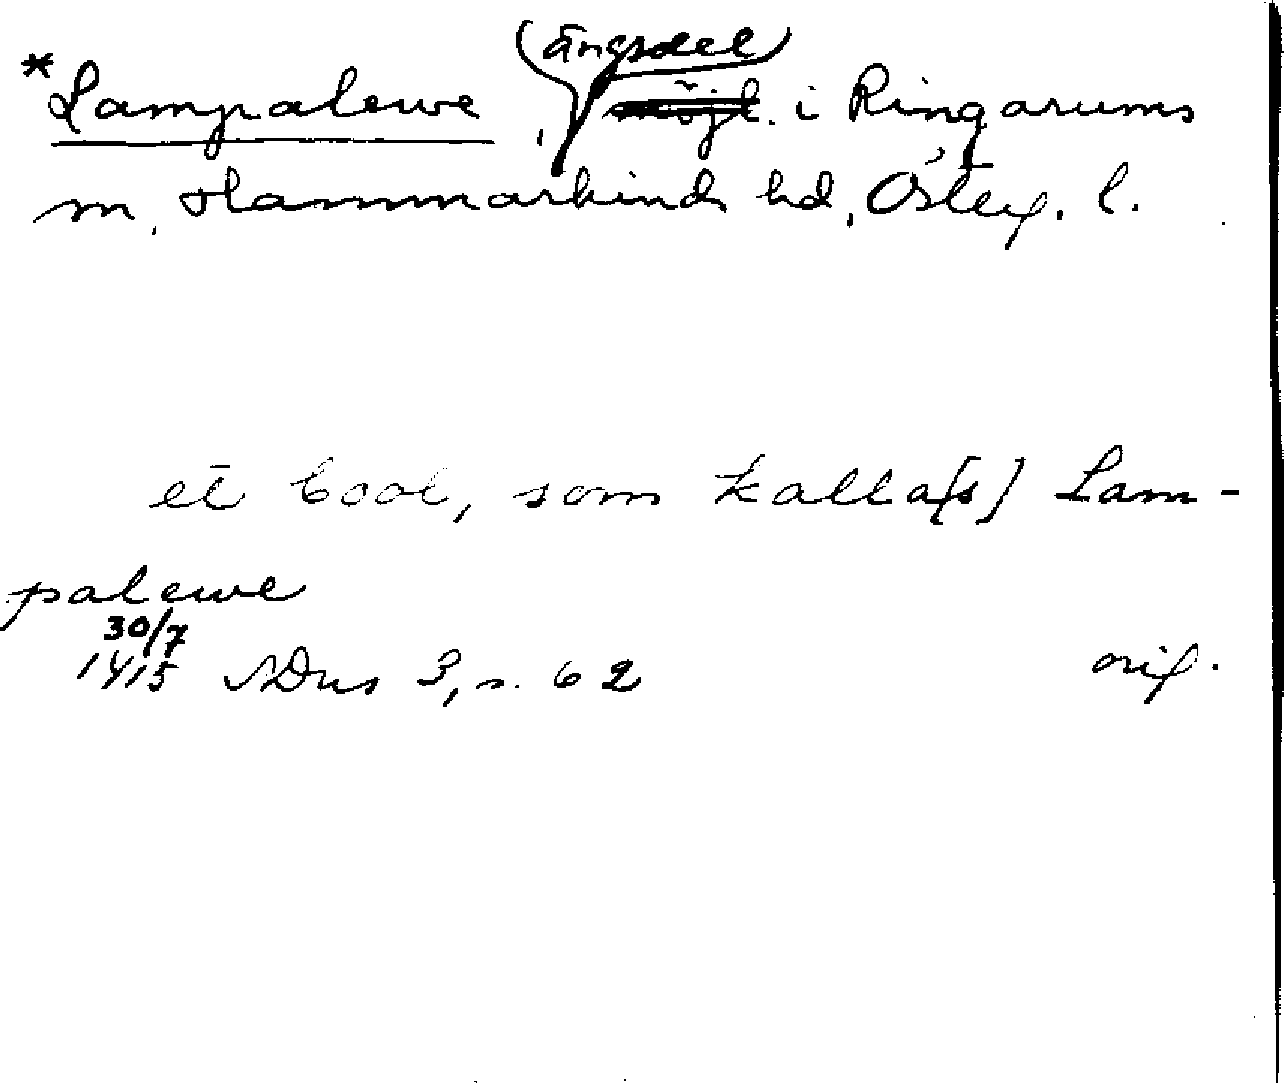 (ängsdel)
*Lampalewe, möjl. i Ringarums
sn, Hammarkinds hd, Österg. l.
et bool, som kalla[s] Lam-
palewe
30/7
1415 SDns 3, s. 62 orig.